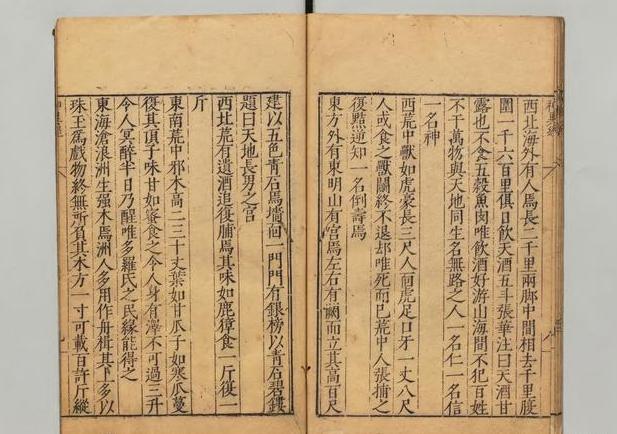 西北海外有人焉長二千里兩脚中間相去千里腹
圍一千六百里俱日飲天酒五斗張華注曰天酒甘
露也不食五穀魚肉唯飲酒好游山海間不犯百姓
不干萬物與天地同生名無路之人一名仁一名信
一名神
西荒中獸如虎豪長三尺人面虎足口牙一丈八尺
人或食之獸鬬終不退却唯死而已荒中人張捕之
復黠逆知一名倒壽焉
東方外有東明山有宮焉左右有闕而立其高百尺
建以五色青石焉墻面一門門有銀榜以青石碧鏤
題曰天地長男之宮
西北荒有遺酒追復脯焉其味如鹿獐食一斤復一
斤
東南荒中邪木高二三十丈葉如甘瓜子如寒瓜蔓
復其頂子味甘如蜜食之令人身有澤不可過三升
令人冥醉半日乃醒唯多羅氏之民緣能得之
東海滄浪洲生强木焉洲人多用作舟楫其下多以
珠玉爲戲物終無所負其木方一寸可載百許斤縱